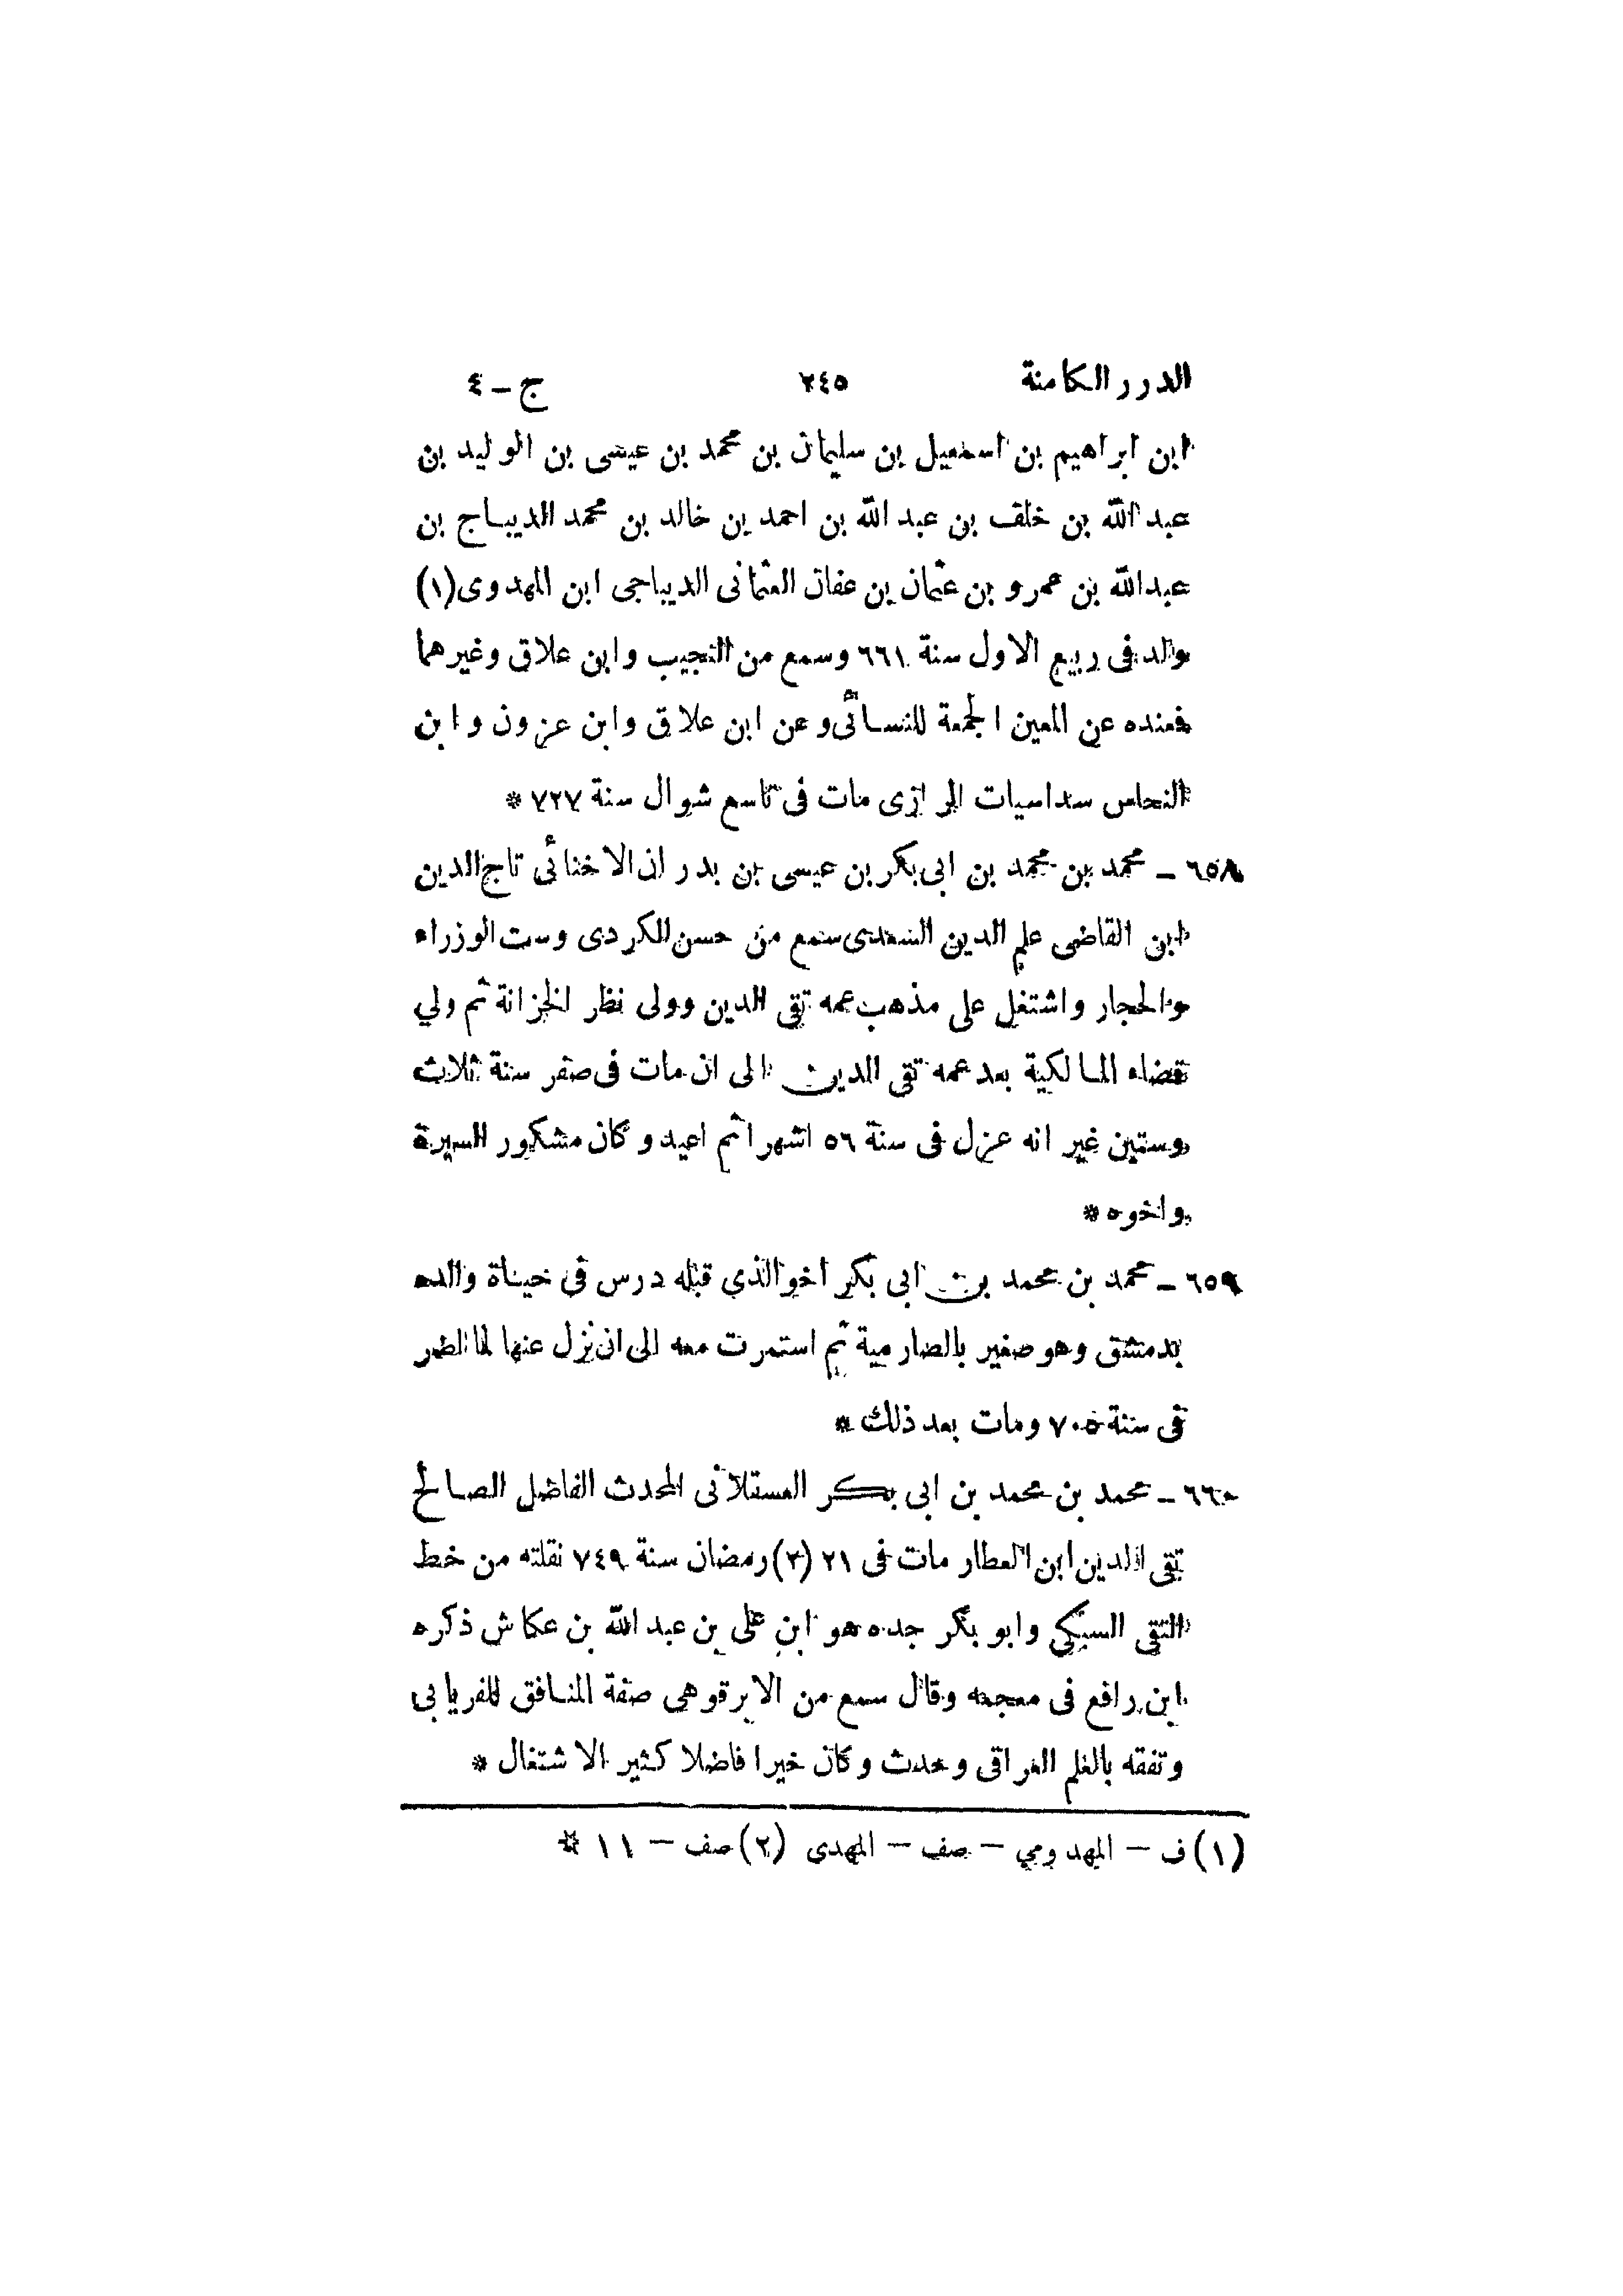 الدرر الكامنة ٢٤٥ ج - ٤
ابن ابراهيم بن اسمعيل بن سليمان بن محمد بن عيسى بن الوليد بن
عبد الله بن خلف بن عبد الله بن احمد بن خالد بن محمد الديباج بن
عبدالله بن عمرو بن عثمان بن عفان العثمانى الديباجى ابن المهدوى (١)
ولد فى ربيع الاول سنة ٦٦١ وسمع من النجيب وابن علاق وغيرهما
فعنده عن المعين الجمعة للنسائى وعن ابن علاق وابن عزون وابن
النحاس سداسيات الرازى مات فى تاسع شوال سنة ٧٢٧ *
٦٥٨ - محمد بن محمد بن ابى بكر بن عيسى بن بدران الاخنائى تاج الدين
ابن القاضى علم الدين السعدى سمع من حسن الكردى وست الوزراء
والحجار واشتغل على مذهب عمه تقى الدين وولى نظر الخزانة ثم ولي
قضاء المالكية بعد عمه تقى الدين الى ان مات فى صفر سنة ثلاث
وستين غير انه عزل فى سنة ٥٦ اشهرا ثم اعيد وكان مشكور السيرة
واخوه *
٦٥٩ - محمد بن محمد بن ابى بكر اخو الذي قبله درس فى حياة والده
بدمشق وهو صغير بالصارمية ثم استمرت معه الى ان نزل عنها لما اضر
فى سنة ٧٠٥ ومات بعد ذلك *
٦٦٠ - محمد بن محمد بن ابى بكر العسقلانى المحدث الفاضل الصالح
تقى الدين ابن العطار مات فى ٢١ (٢) رمضان سنة ٧٤٩ نقلته من خط
التقى السبكي وابو بكر جده هو ابن على بن عبد الله بن عكاش ذكره
ابن رافع فى معجمه وقال سمع من الابرقوهى صفة المنافق للفريابى
وتفقه بالعلم العراقى وحدث وكان خيرا فاضلا كثير الاشتغال *
(١) ف - المهدومي - صف - المهدى (٢) صف - ١١ *